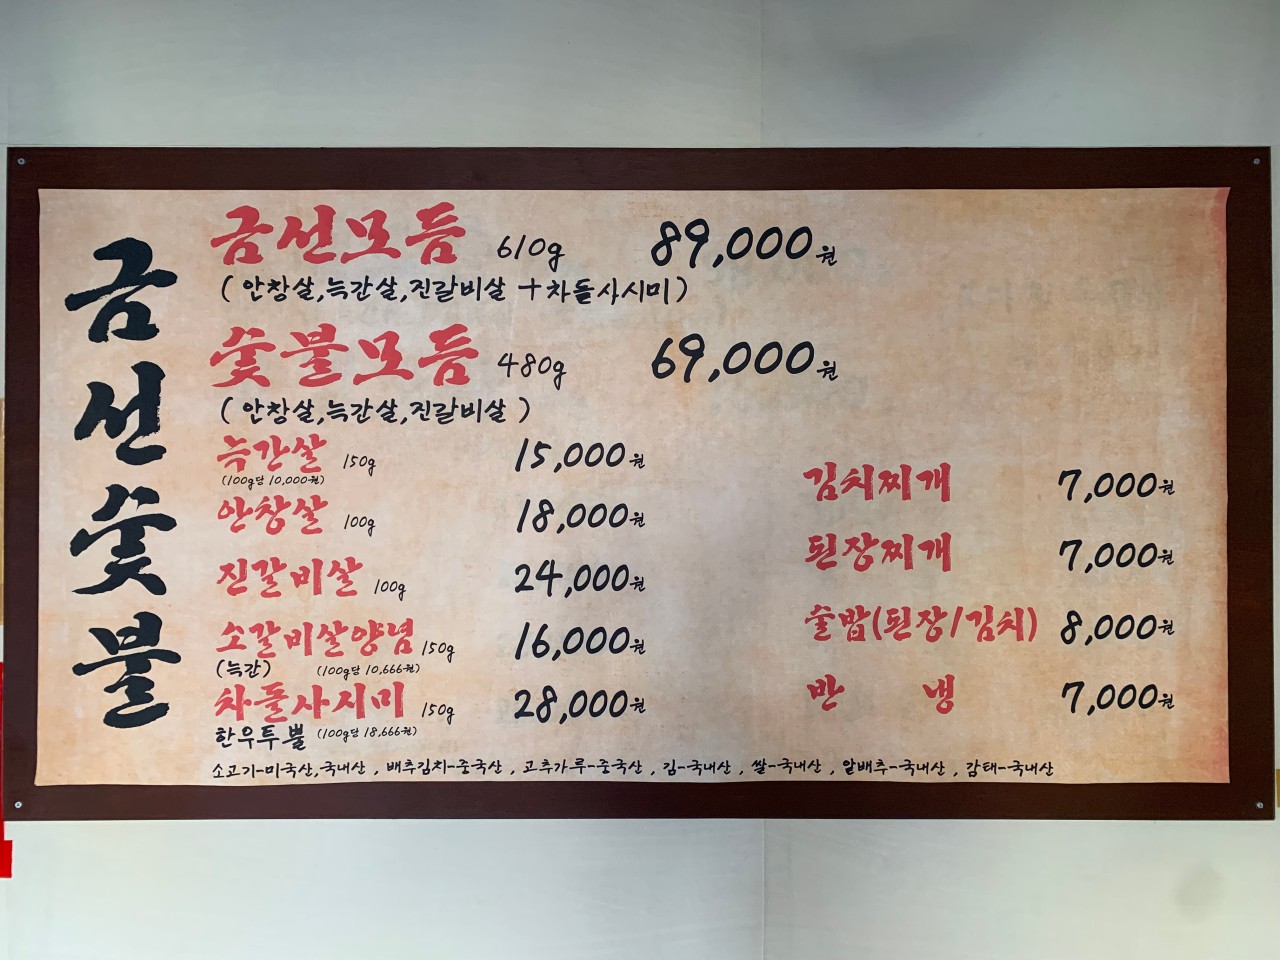 금선숯불
금선모듬 610g 89,000원
( 안창살,늑간살,진갈비살 + 차돌사시미 )
숯불모듬 480g 69,000원
( 안창살,늑간살,진갈비살 )
늑간살 150g 15,000원
(100g당 10,000원)
안창살 100g 18,000원
진갈비살 100g 24,000원
소갈비살양념 150g 16,000원
(늑간) (100g당 10,666원)
차돌사시미 150g 28,000원
한우투쁠 (100g당 18,666원)
김치찌개 7,000원
된장찌개 7,000원
술밥(된장/김치) 8,000원
반 냉 7,000원
소고기-미국산,국내산 , 배추김치-중국산 , 고추가루-중국산 , 김-국내산 , 쌀-국내산 , 알배추-국내산 , 감태-국내산